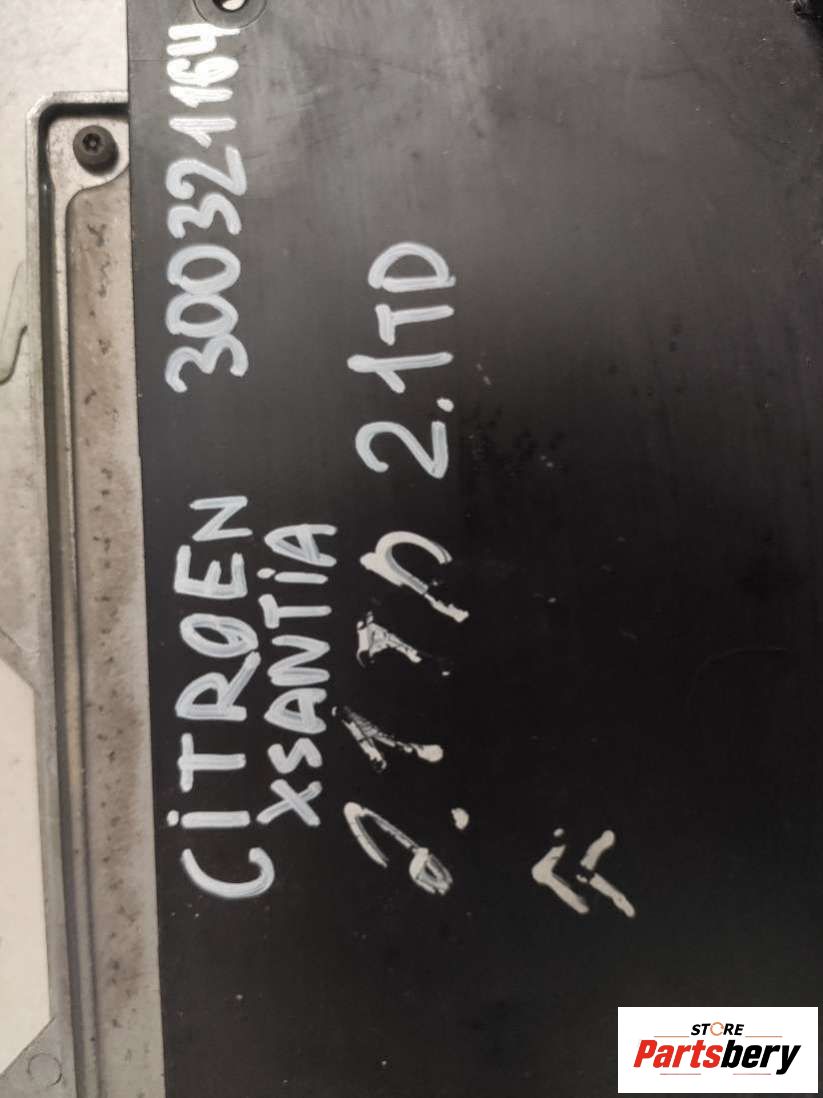 CiTRØEN 300321164
XSANTiA
2.1TD 2.1TD
STORE
Partsbery